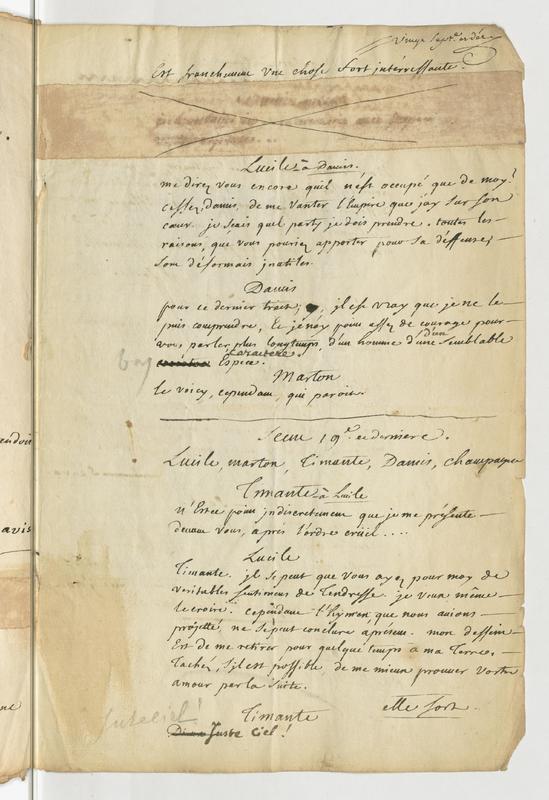 Vingt Sept.e et der
Est franchement Une chose Fort intérressante.
Lucile à Damis.
me direz vous encore quil n'est occupé que de moy?
cessez, Damis, de me Vanter l'Empire que j'ay Sur son
cœur. je sçais quel party je dois prendre. toutes les
raisons, que vous pouriez apporter pour Sa déffense,
Sont désormais jnutiles.
Damis
pour ce dernier trait, jl est vray que je ne le
puis comprendre, Et je n'ay point assez de courage pour
vous parler plus longtemps, d'un homme d'une Semblable
d'un
caractere.
Espece.
Marton
le voicy, cependant, qui paroit.
Scene 19e et derniere.
Lucile, marton, Timante, Damis, champagne
Timante à Lucile
N'Estce point jndiscretement que je me présente
devant Vous, après l'ordre crüel....
Lucile
Timante. jl se peut que Vous ayez pour moy de
veritables sentimens de Tendresse. je veux même
le croire. cependant l'hymen que nous avions
projetté, ne Sepeut conclure apresent. mon dessein
Est de me retirer pour quelque temps a ma Terre.
Tachez, s'jl est possible, de me mieux prouver Votre
amour par la Suite.
elle sort.
Timante
Juste Ciel!
Juste ciel!
endoit
avis